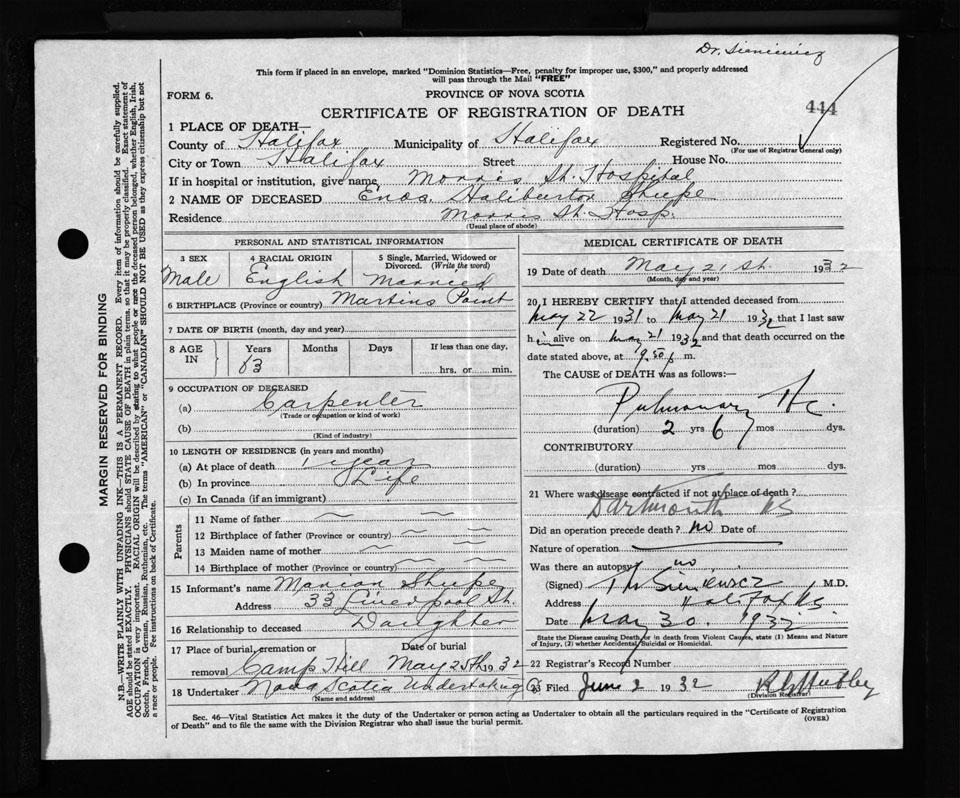 Dr. Sieniewicz
This form if placed in an envelope, marked "Dominion Statistics—Free, penalty for improper use, $300," and properly addressed
will pass through the Mail "FREE"
FORM 6.
PROVINCE OF NOVA SCOTIA
CERTIFICATE OF REGISTRATION OF DEATH
444
1 PLACE OF DEATH—
County of Halifax Municipality of Halifax Registered No.
(For use of Registrar General only)
City or Town Halifax Street House No.
If in hospital or institution, give name Morris St. Hospital
2 NAME OF DECEASED Enos. Haliburton
Residence Morris St. Hosp.
(Usual place of abode)
PERSONAL AND STATISTICAL INFORMATION
3 SEX 4 RACIAL ORIGIN 5 Single, Married, Widowed or
Divorced. (Write the word)
Male English Married
6 BIRTHPLACE (Province or country) Martins Point
7 DATE OF BIRTH (month, day and year)
8 AGE IN Years Months Days If less than one day,
63 hrs. or min.
9 OCCUPATION OF DECEASED
(a) Carpenter
(Trade or occupation or kind of work)
(b)
(Kind of industry)
10 LENGTH OF RESIDENCE (in years and months)
(a) At place of death 1 year
(b) In province Life
(c) In Canada (if an immigrant)
Parents
11 Name of father
12 Birthplace of father (Province or country)
13 Maiden name of mother
14 Birthplace of mother (Province or country)
15 Informant's name Marion
Address 33 Liverpool St.
16 Relationship to deceased Daughter
17 Place of burial, cremation or Date of burial
removal Camp Hill May 25th 1932
18 Undertaker Nova Scotia Undertaking Co
(Name and address)
MEDICAL CERTIFICATE OF DEATH
19 Date of death May 21 st. 1932
(Month, day and year)
20 I HEREBY CERTIFY that I attended deceased from
May 22 1931 to May 21 1932 that I last saw
him alive on May 21 1932 and that death occurred on the
date stated above, at 9.50 m.
The CAUSE of DEATH was as follows:—
Pulmonary
(duration) 2 yrs 6 mos dys.
CONTRIBUTORY
(duration) yrs mos dys.
21 Where was disease contracted if not at place of death?
Dartmouth NS
Did an operation precede death? no Date of
Nature of operation
Was there an autopsy no
(Signed) M.D.
Address Halifax NS
Date May 30. 1932
State the Disease causing Death, or in death from Violent Causes, state (1) Means and Nature
of Injury, (2) whether Accidental, Suicidal or Homicidal.
22 Registrar's Record Number
23 Filed June 2 1932
(Division Registrar)
Sec. 46—Vital Statistics Act makes it the duty of the Undertaker or person acting as Undertaker to obtain all the particulars required in the "Certificate of Registration
of Death" and to file the same with the Division Registrar who shall issue the burial permit.
(OVER)
MARGIN RESERVED FOR BINDING
N.B.—WRITE PLAINLY WITH UNFADING INK—THIS IS A PERMANENT RECORD. Every item of information should be carefully supplied.
AGE should be stated EXACTLY. PHYSICIANS should STATE CAUSE OF DEATH in plain terms, so that it may be properly classified. Exact statement of
OCCUPATION is very important. RACIAL ORIGIN will be described by stating to what people or race the deceased person belonged, whether English, Irish,
Scotch, French, German, Russian, Ruthenian, etc. The terms "AMERICAN" or "CANADIAN" SHOULD NOT BE USED as they express citizenship but not
a race or people. See instructions on back of Certificate.